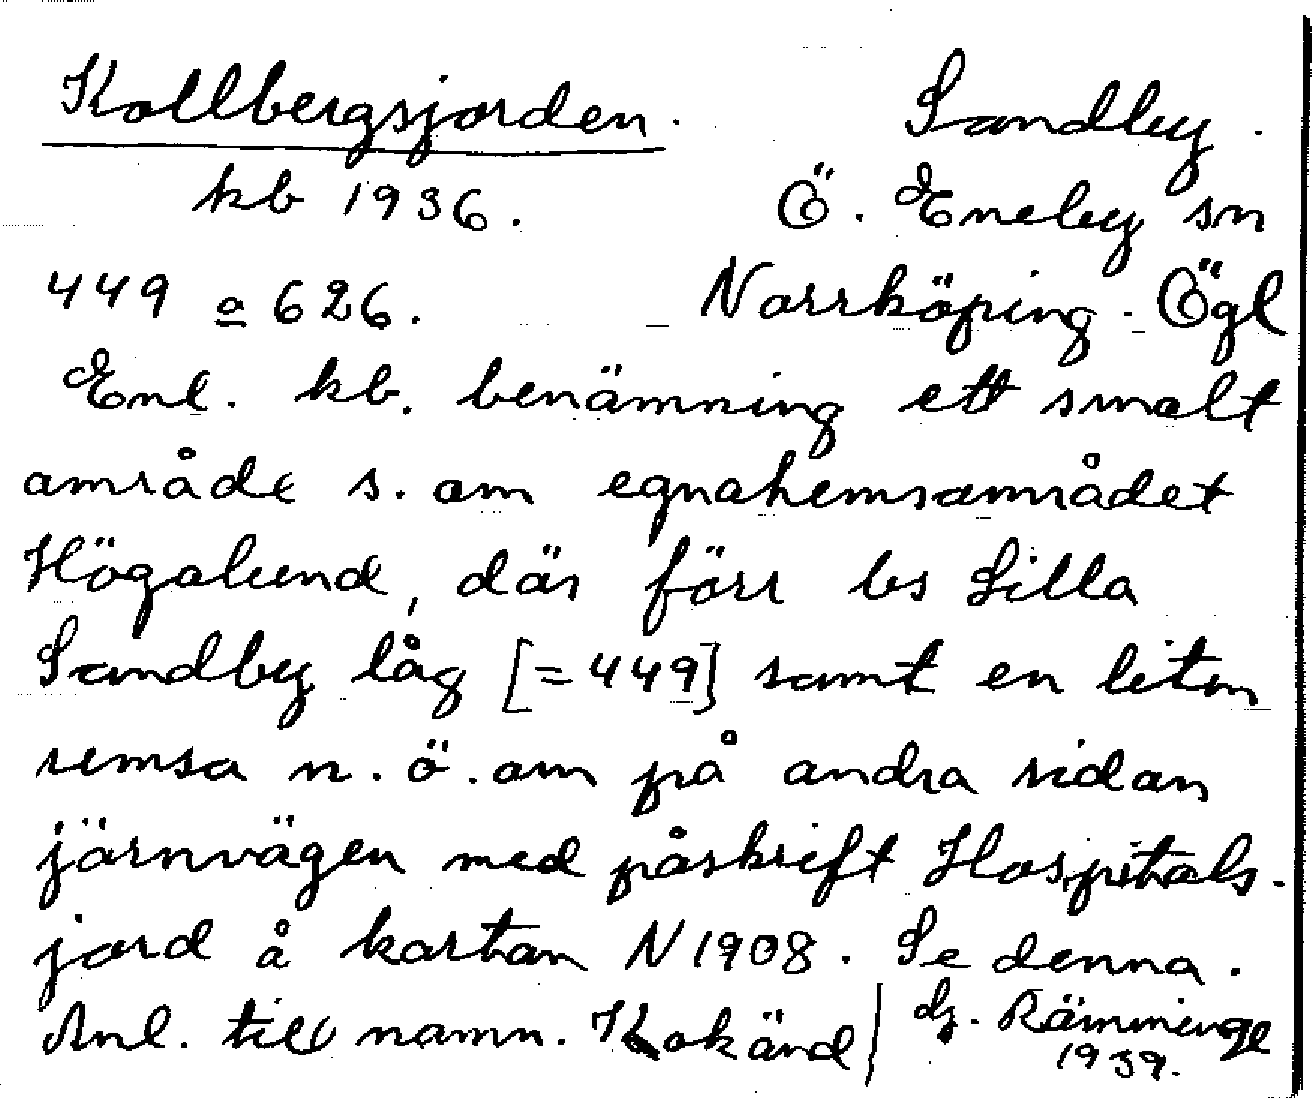 Kollbergsjorden. Sandby.
kb 1936. Ö. Eneby sn
449 o 626. Norrköping. Ögl
Enl. kb. benämning ett smalt
område s. om egnahemsområdet
Högalund, där förr bs Lilla
Sandby låg [=449] samt en liten
remsa n. ö. om på andra sidan
järnvägen med påskrift Hospitals-
jord å kartan N 1908. Se denna.
Anl. till namn. Okänd / dz. Rämminge
1939.